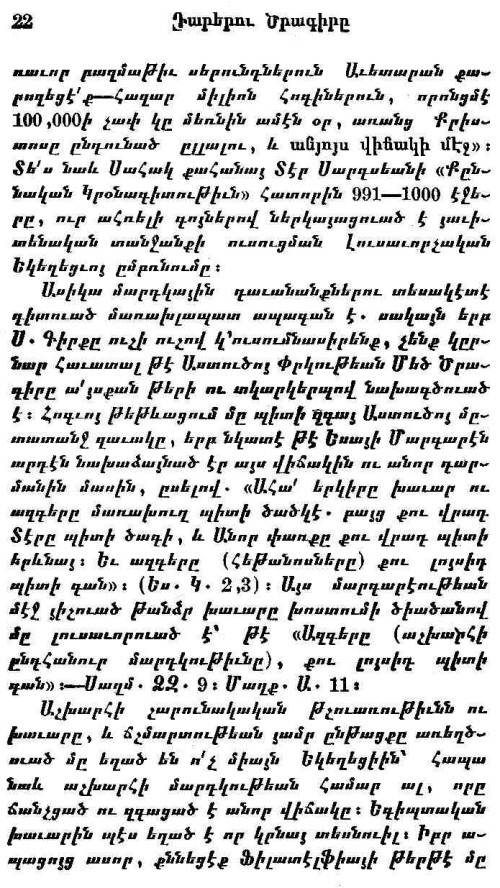 22 Դարերու Ծրագիրը
ուաւոր բազմաթիւ սերունդներուն Աւետարան քա-
րոզեցէ՛ք—Հազար միլիոն Հոգիներուն, որոնցմէ
100,000ի չափ կը մեռնին ամէն օր, առանց Քրիս-
տոսը ընդունած ըլլալու, և անյոյս վիճակի մէջ»։
Տե՛ս նաև Սահակ քահանայ Տէր Սարգսեանի «Քըն-
նական Կրօնագիտութիւն» Հատորին 991—1000 էջե-
րը, ուր ահռելի գոյներով ներկայացուած է յաւի-
տենական տանջանքի ուսուցման Լուսաւորչական
Եկեղեցւոյ ըմբռնումը։
Ասիկա մարդկային դաւանանքներու տեսակէտէ
դիտուած մառախլապատ ապագան է. սակայն երբ
Ս. Գիրքը ուշի ուշով կ՚ուսումնասիրենք, չենք կըր-
նար Հաւատալ թէ Աստուծոյ Փրկութեան Մեծ Ծրա-
գիրը ա՛յսքան թերի ու տկարկերպով նախագծուած
է։ Հոգւոյ թեթևացում մը պիտի զգայ Աստուծոյ մը-
տատանջ զաւակը, երբ նկատէ թէ Եսայի Մարգարէն
արդէն նախաձայնած էր այս վիճակին ու անոր դար-
մանին մասին, ըսելով. «Ահա՛ երկիրը խաւար ու
ազգերը մառախուղ պիտի ծածկէ. բայց քու վրադ
Տէրը պիտի ծագի, և Անոր փառքը քու վրադ պիտի
երևնայ։ Եւ ազգերը (Հեթանոսները) քու լոյսիդ
պիտի գան»։ (Ես. Կ. 2,3)։ Այս մարգարէութեան
մէջ յիշուած թանձր խաւարը խոստումի ծիածանով
մը լուսաւորուած է՝ թէ «Ազգերը (աշխարհի
ընդհանուր մարդկութիւնը), քու լոյսիդ պիտի
գան»։—Սաղմ. ՉՉ. 9։ Մաղք. Ա. 11։
Աշխարհի շարունակական թշուառութիւնն ու
խաւարը, և ճշմարտութեան յամր ընթացքը առեղծ-
ուած մը եղած են ո՛չ միայն Եկեղեցիին՝ Հապա
նաև աշխարհի մարդկութեան Համար ալ, որը
ճանչցած ու զգացած է անոր վիճակը։ Եգիպտական
խաւարին պէս եղած է որ կրնայ տեսնուիլ։ Իբր ա-
պացոյց ասոր, քննեցէք Ֆիլատէլֆիայի թերթէ մը